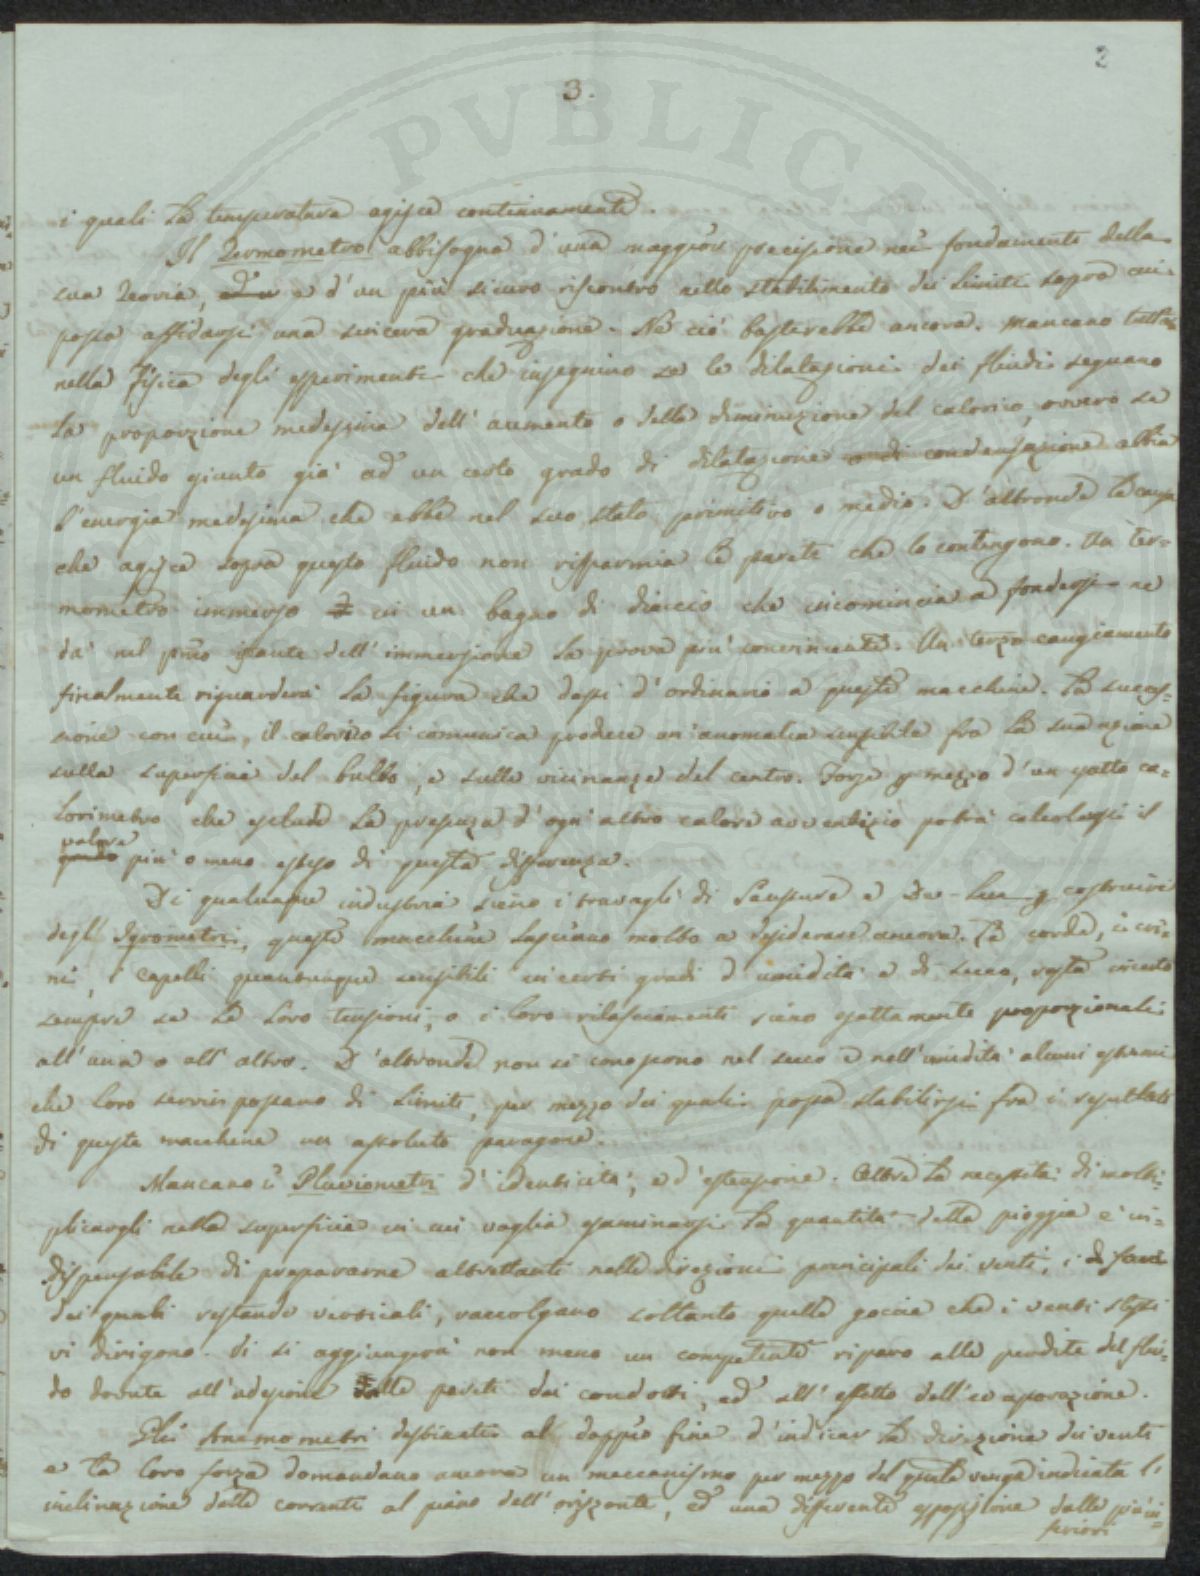 2
3.
i quali la temperatura agisce continuamente.
Il Termometro abbisogna d'una maggior precisione nei fondamenti della
sua Teoria, e d'un più sicuro riscontro nello stabilimento dei limiti sopra cui
possa affidarsi una sincera graduazione. Nè ciò basterebbe ancora. Mancano tutta
nella fisica degli esperimenti che insegnino se le dilatazioni dei fluidi seguano
la proporzione medesima dell'aumento o della diminuzione del calorico, ovvero se
un fluido giunto già ad un certo grado di dilatazione o di condensazione abbia
l'energia medesima che ebbe nel suo stato primitivo o medio. D'altronde la causa
che agisce sopra questo fluido non risparmia le pareti che lo contengono. Un ter=
mometro immerso in un bagno di diaccio che incomincia a fondersi ne
dà nel pmo istante dell'immersione la prova più convincente. Un terzo cangiamento
finalmente riguarderà la figura che dassi d'ordinario a queste macchine. La succes=
sione con cui, il calorico si comunica produce un'anomalia sensibile fra la sua azione
sulla superficie del bulbo, e sulle vicinanze del centro. Forse p mezzo d'un esatto ca=
lorimetro che escluda la presenza d'ogni altro calore avventizio potrà calcolarsi il
valore
più o meno esteso di questa differenza.
Di qualunque industria sieno i travagli di Saussure e De-Luc p costruire
degl' Igrometri, queste macchine lasciano molto a desiderare ancora. Le corde, i cri=
ni, i capelli quantunque sensibili in certi gradi d'umidità e di secco, resta incerto
sempre se le loro tensioni, o i loro rilasciamenti sieno esattamente proporzionali
all'una o all'altro. D'altronde non si conoscono nel secco e nell'umidità alcuni estremi
che loro servir possano di limiti, per mezzo dei quali possa stabilirsi fra i resultati
di queste macchine un assoluto paragone.
Mancano i Pluviometri d'identicità, e d'estensione. Oltre la necessità di molti=
plicargli nella superficie in cui voglia esaminarsi la quantità della pioggia è in=
dispensabile di prepararne altrettanti nelle direzioni principali dei venti, i
dei quali restando verticali, raccolgano soltanto quelle goccie che i venti stessi
vi dirigono. Vi si aggiungerà non meno un competente riparo alle perdite del flui=
do dovute all'adesione delle pareti dei condotti, ed all'effetto dell'evaporazione.
Gli Anemometri destinati al doppio fine d'indicar la direzione dei venti
e la loro forza domandano ancora un meccanismo per mezzo del quale venga indicata l'
inclinazione delle correnti al piano dell'orizzonte, ed una differente esposizione dalle più in=
feriori